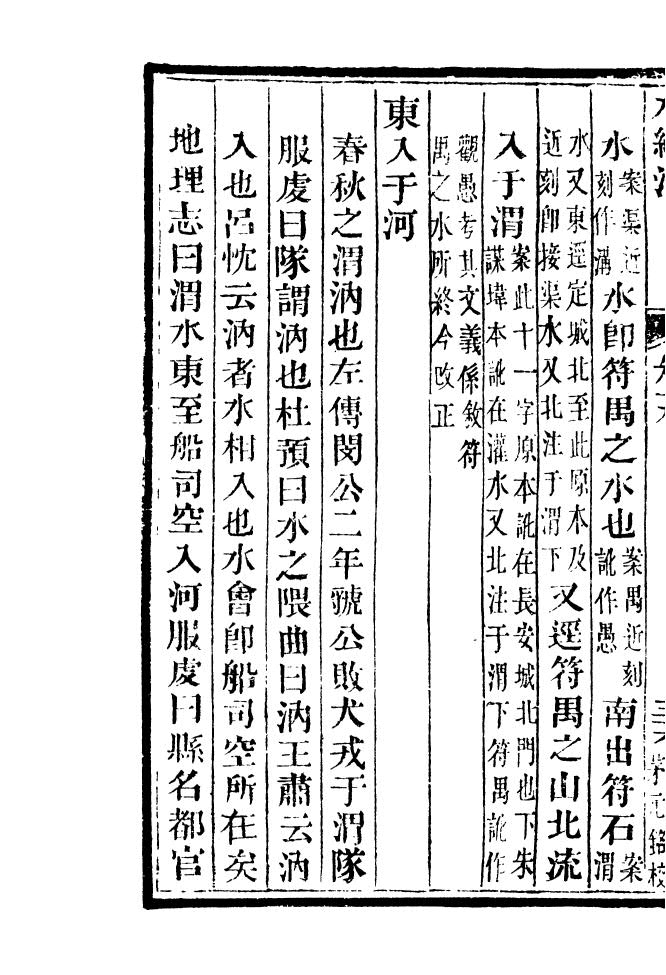 水案渠近刻作溝水卽符禺之水也案禺近刻訛作愚南出符石案渭
水又東逕定城北至此原本及近刻卽接渠水又北注于渭下又逕符禺之山北流
入于渭案此十一字原本訛在長安城北門也下朱謀㙔本訛在灌水又北注于渭下符禺訛作
觀愚考其文義係敘符禺之水所終今改正
東入于河
春秋之渭汭也左傳閔公二年虢公敗犬戎于渭隊
服虔曰隊謂汭也杜預曰水之隈曲曰汭王肅云汭
入也呂忱云汭者水相入也水會卽船司空所在矣
地理志曰渭水東至船司空入河服虔曰縣名都官